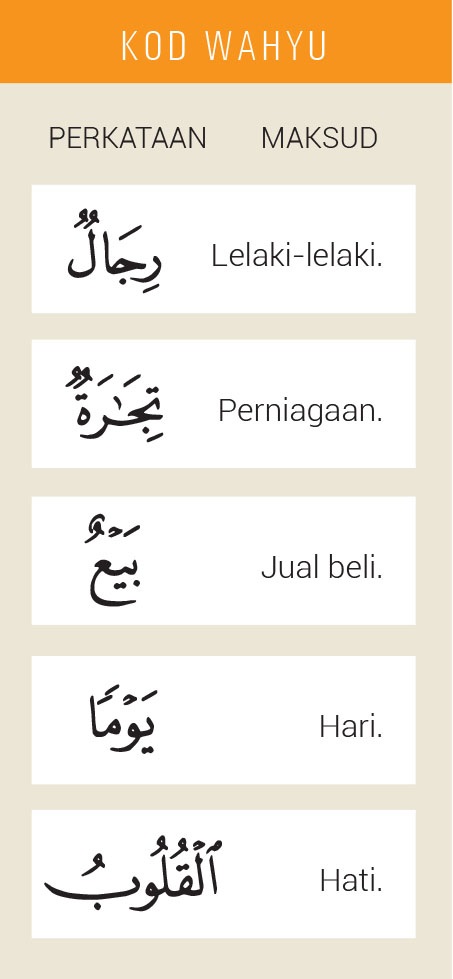 KOD WAHYU
PERKATAAN MAKSUD
رِجَالٌ Lelaki-lelaki.
تِجَـٰرَةٌ Perniagaan.
بَيْعٌ Jual beli.
يَوْمًا Hari.
ٱلْقُلُوبُ Hati.